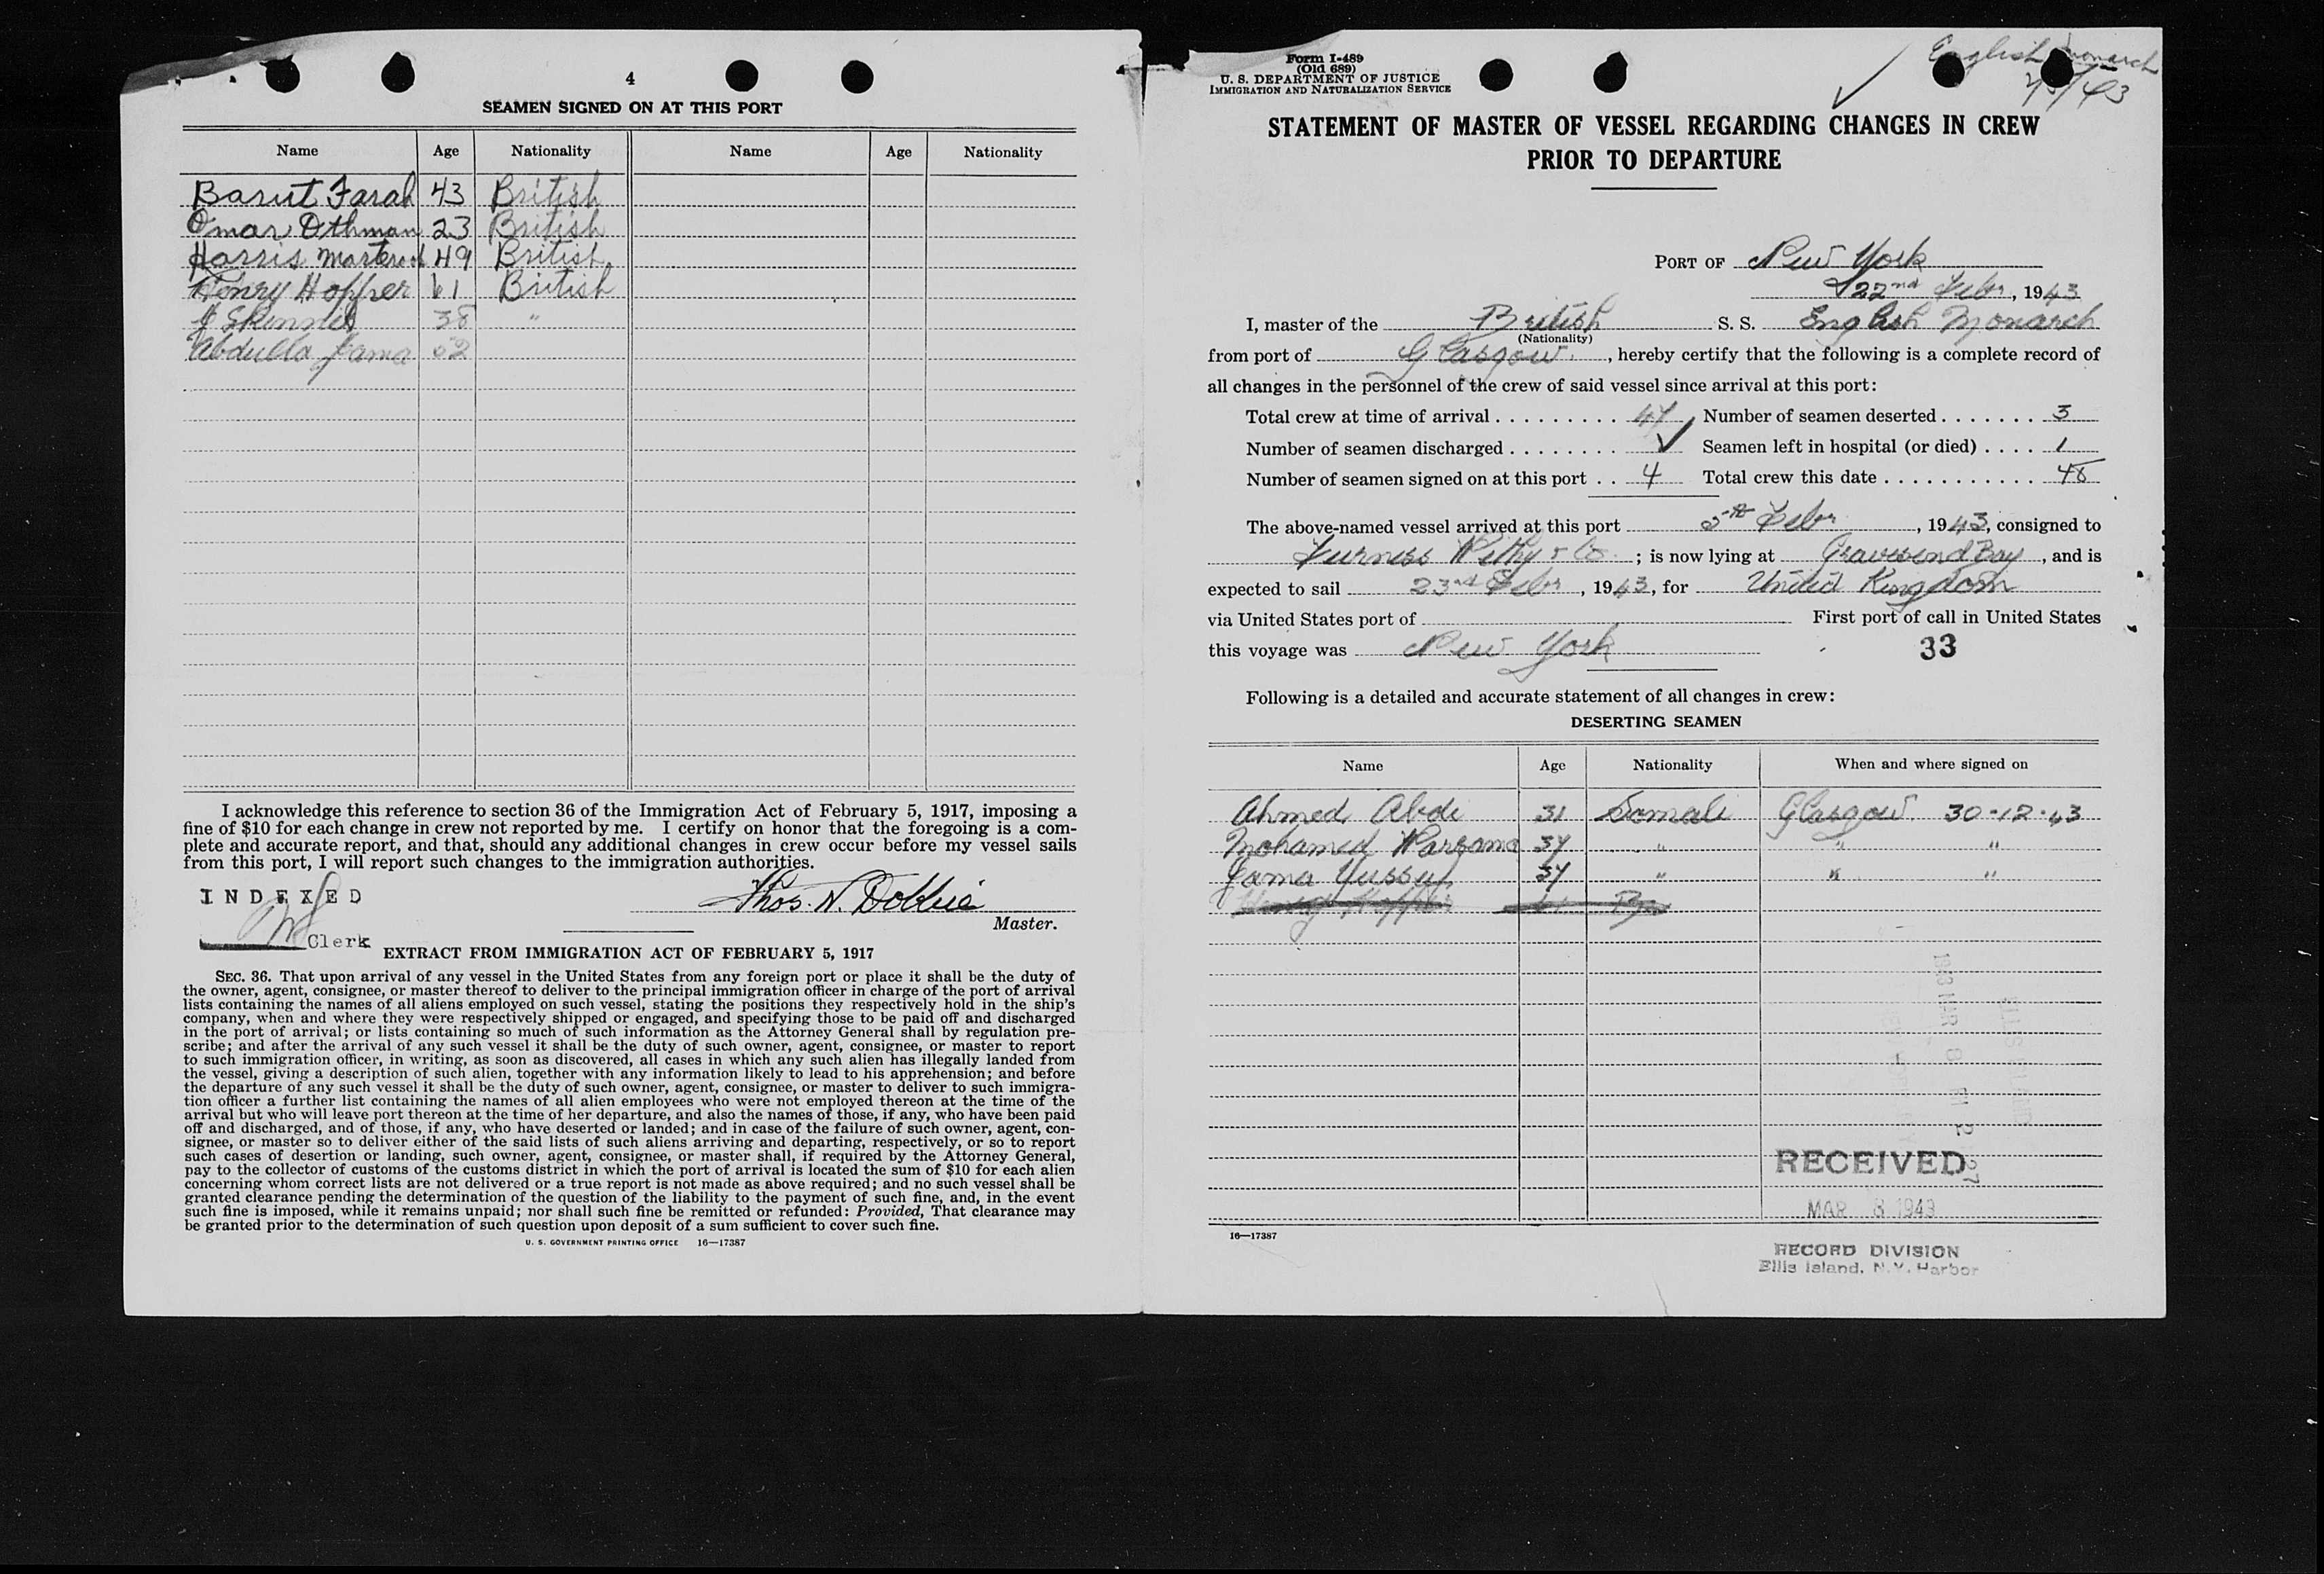 4
SEAMEN SIGNED ON AT THIS PORT
Name Age Nationality Name Age Nationality
Barut Farah 43 British
Omar Othman 23 British
Harris 49 British
Henry Hopper 61 British
J Skinner 38 "
Abdulla Jama 52
I acknowledge this reference to section 36 of the Immigration Act of February 5, 1917, imposing a
fine of $10 for each change in crew not reported by me. I certify on honor that the foregoing is a com-
plete and accurate report, and that, should any additional changes in crew occur before my vessel sails
from this port, I will report such changes to the immigration authorities.
INDEXED
Thos. N. Dobbie
Master.
Clerk
EXTRACT FROM IMMIGRATION ACT OF FEBRUARY 5, 1917
SEC. 36. That upon arrival of any vessel in the United States from any foreign port or place it shall be the duty of
the owner, agent, consignee, or master thereof to deliver to the principal immigration officer in charge of the port of arrival
lists containing the names of all aliens employed on such vessel, stating the positions they respectively hold in the ship's
company, when and where they were respectively shipped or engaged, and specifying those to be paid off and discharged
in the port of arrival; or lists containing so much of such information as the Attorney General shall by regulation pre-
scribe; and after the arrival of any such vessel it shall be the duty of such owner, agent, consignee, or master to report
to such immigration officer, in writing, as soon as discovered, all cases in which any such alien has illegally landed from
the vessel, giving a description of such alien, together with any information likely to lead to his apprehension; and before
the departure of any such vessel it shall be the duty of such owner, agent, consignee, or master to deliver to such immigra-
tion officer a further list containing the names of all alien employees who were not employed thereon at the time of the
arrival but who will leave port thereon at the time of her departure, and also the names of those, if any, who have been paid
off and discharged, and of those, if any, who have deserted or landed; and in case of the failure of such owner, agent, con-
signee, or master so to deliver either of the said lists of such aliens arriving and departing, respectively, or so to report
such cases of desertion or landing, such owner, agent, consignee, or master shall, if required by the Attorney General,
pay to the collector of customs of the customs district in which the port of arrival is located the sum of $10 for each alien
concerning whom correct lists are not delivered or a true report is not made as above required; and no such vessel shall be
granted clearance pending the determination of the question of the liability to the payment of such fine, and, in the event
such fine is imposed, while it remains unpaid; nor shall such fine be remitted or refunded: Provided, That clearance may
be granted prior to the determination of such question upon deposit of a sum sufficient to cover such fine.
U. S. GOVERNMENT PRINTING OFFICE 16—17387
Form I-489
(Old 689)
U. S. DEPARTMENT OF JUSTICE
IMMIGRATION AND NATURALIZATION SERVICE
English Monarch
STATEMENT OF MASTER OF VESSEL REGARDING CHANGES IN CREW
PRIOR TO DEPARTURE
PORT OF New York
22nd Febr, 1943
I, master of the British S. S. English Monarch
(Nationality)
from port of Glasgow, hereby certify that the following is a complete record of
all changes in the personnel of the crew of said vessel since arrival at this port:
Total crew at time of arrival 47 Number of seamen deserted 3
Number of seamen discharged Seamen left in hospital (or died) 1
Number of seamen signed on at this port 4 Total crew this date
The above-named vessel arrived at this port 5th Febr, 1943, consigned to
Furness Withy & Co.; is now lying at Gravesend Bay, and is
expected to sail 23rd Febr, 1943, for United Kingdom
via United States port of First port of call in United States
this voyage was New York
33
Following is a detailed and accurate statement of all changes in crew:
DESERTING SEAMEN
Name Age Nationality When and where signed on
Ahmed Abdi 31 Somali Glasgow 30-12-43
Mohamed Warsama 34 " " "
Jama Yussuf 34 " " "
RECEIVED
MAR 8 1943
16—17387
RECORD DIVISION
Ellis Island, N.Y. Harbor